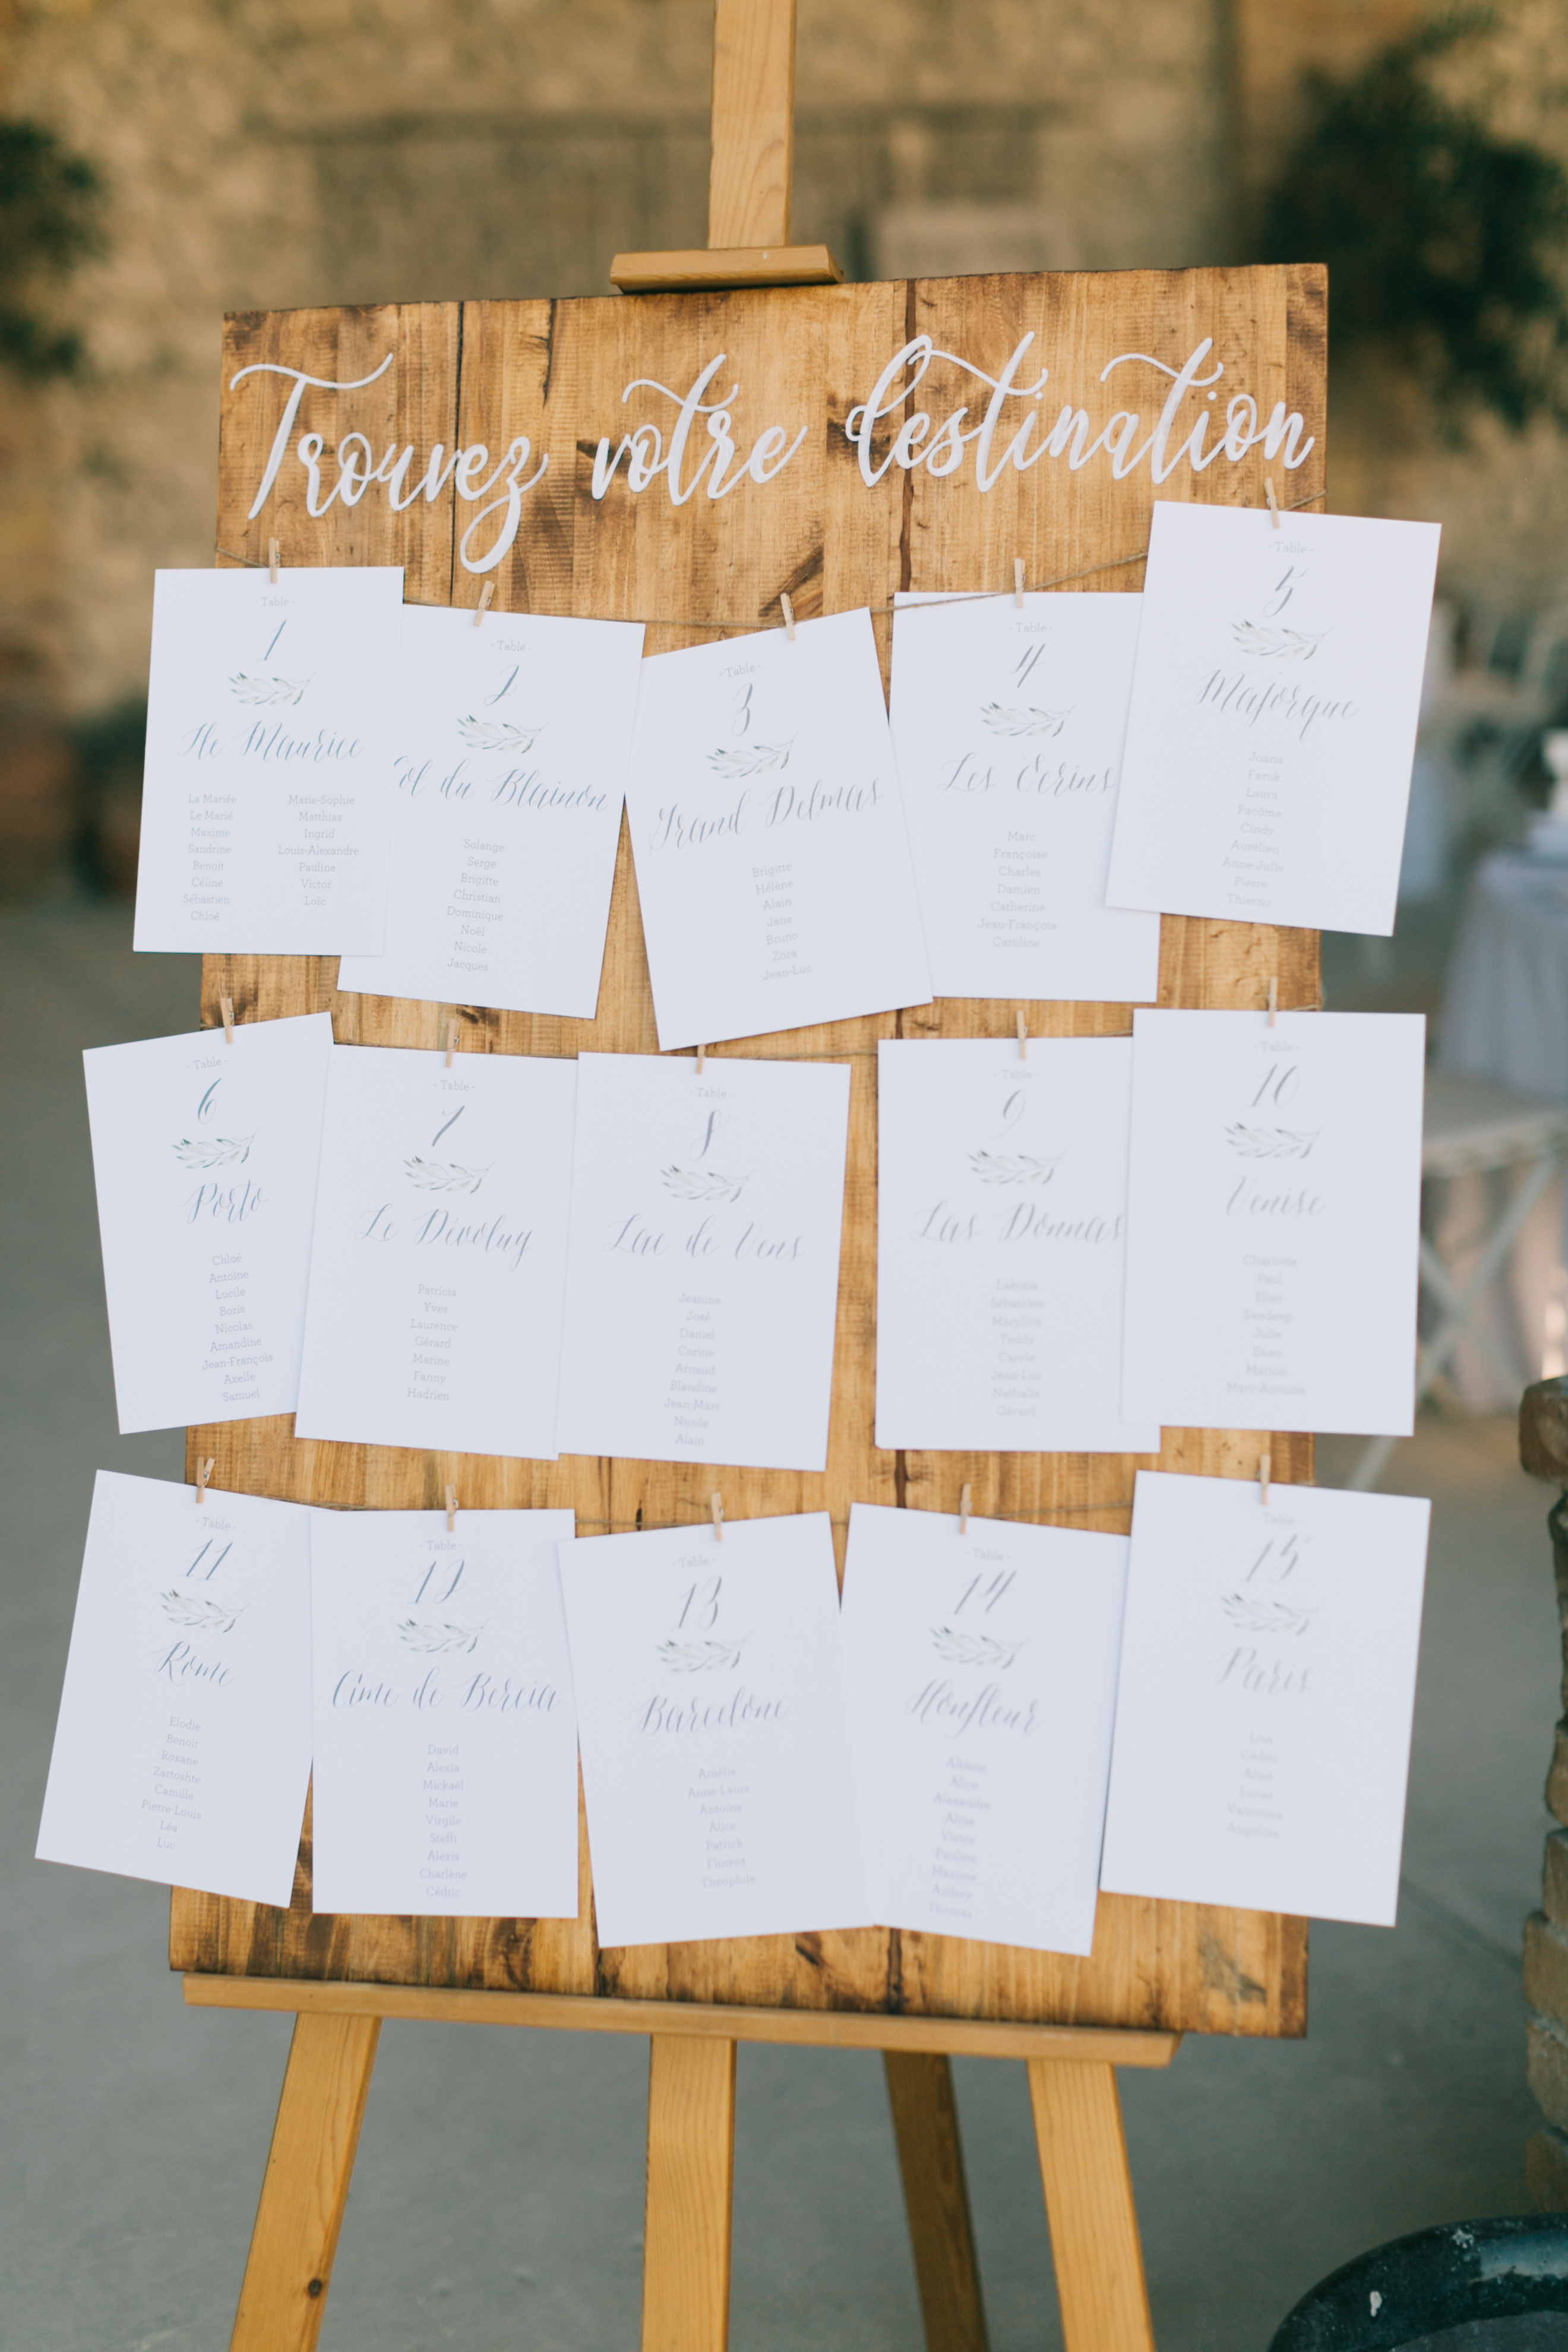 Trouvez votre destination
- Table -
1
Ile Maurice
La Mariée
Le Marié
Maxime
Sandrine
Benoit
Céline
Sébastien
Chloé
Marie-Sophie
Matthias
Ingrid
Louis-Alexandre
Pauline
Victor
Loïc
- Table -
2
Col du Blainon
Solange
Serge
Brigitte
Christian
Dominique
Noël
Nicole
Jacques
- Table -
3
Grand Delmas
Brigitte
Hélène
Alain
Jane
Bruno
Zora
Jean-Luc
- Table -
4
Les Écrins
Marc
Françoise
Charles
Damien
Catherine
Jean-François
Caroline
- Table -
5
Majorque
Joana
Faruk
Laura
Pacôme
Cindy
Aurélien
Anne-Julie
Pierre
Thierno
- Table -
6
Porto
Chloé
Antoine
Lucile
Boris
Nicolas
Amandine
Jean-François
Axelle
Samuel
- Table -
7
Le Dévoluy
Patricia
Yves
Laurence
Gérard
Marine
Fanny
Hadrien
- Table -
8
Lac de Vens
Jeanine
José
Daniel
Corine
Arnaud
Blandine
Jean-Marc
Nicole
Alain
- Table -
9
Las Donnas
Laëtitia
Sébastien
Maryline
Teddy
Carole
Jean-Luc
Nathalie
Gérard
- Table -
10
Venise
Charlotte
Paul
Elise
Sandeep
Julie
Enzo
Marion
Marc-Antoine
- Table -
11
Rome
Elodie
Benoit
Roxane
Zartoshte
Camille
Pierre-Louis
Léa
Luc
- Table -
12
Cime de Bercia
David
Alexia
Mickaël
Marie
Virgile
Steffi
Alexis
Charlène
Cédric
- Table -
13
Barcelone
Amélie
Anne-Laure
Antoine
Alice
Patrick
Florent
Théophile
- Table -
14
Honfleur
Albane
Alice
Alexandre
Aline
Victor
Pauline
Maxime
Audrey
Thomas
- Table -
15
Paris
Lisa
Cédric
Aliné
Lucas
Valentina
Angelina